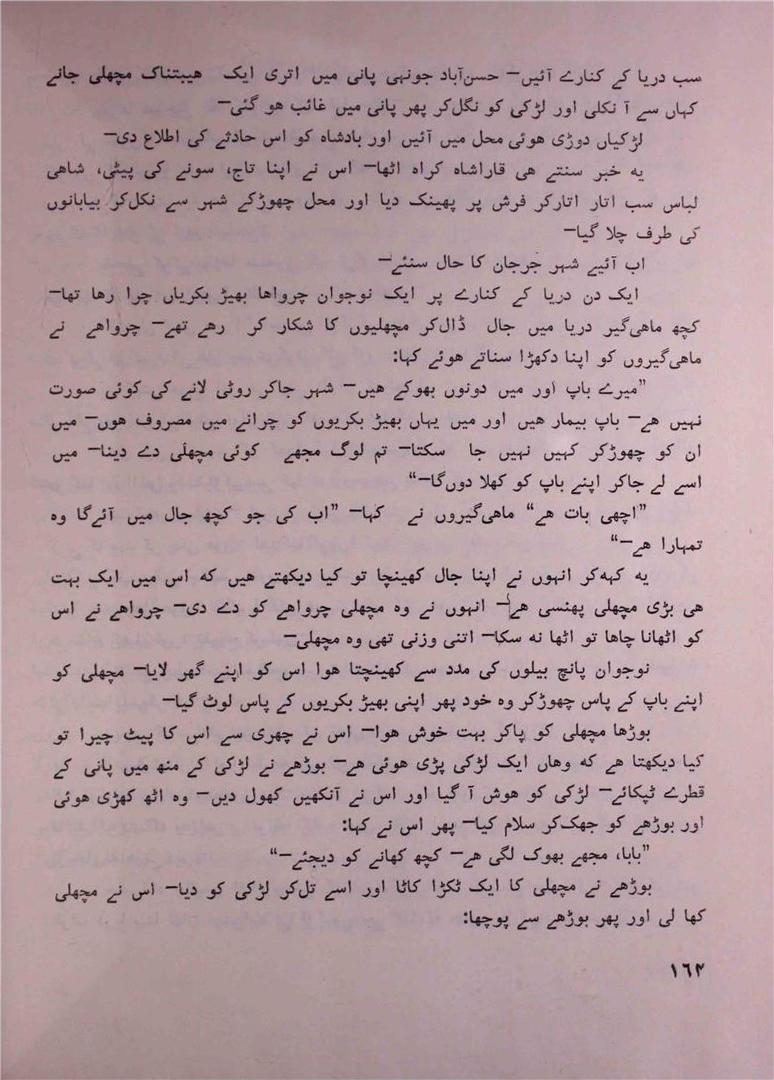 سب دریا کے کنارے آئیں— حسن‌آباد جونہی پانی میں اتری ایک ہیبتناک مچھلی جانے
کہاں سے آ نکلی اور لڑکی کو نگل‌کر پھر پانی میں غائب ہو گئی—
لڑکیاں دوڑی ہوئی محل میں آئیں اور بادشاہ کو اس حادثے کی اطلاع دی—
یہ خبر سنتے ہی قاراشاہ کراہ اٹھا— اس نے اپنا تاج، سونے کی پیٹی، شاہی
لباس سب اتار اتارکر فرش پر پھینک دیا اور محل چھوڑکے شہر سے نکل‌کر بیابانوں
کی طرف چلا گیا—
اب آئیے شہر جرجان کا حال سنئے—
ایک دن دریا کے کنارے پر ایک نوجوان چرواہا بھیڑ بکریاں چرا رہا تھا—
کچھ ماہی‌گیر دریا میں جال ڈال‌کر مچھلیوں کا شکار کر رہے تھے— چرواہے نے
ماہی‌گیروں کو اپنا دکھڑا سناتے ہوئے کہا:
”میرے باپ اور میں دونوں بھوکے ہیں— شہر جاکر روٹی لانے کی کوئی صورت
نہیں ہے— باپ بیمار ہیں اور میں یہاں بھیڑ بکریوں کو چرانے میں مصروف ہوں— میں
ان کو چھوڑکر کہیں نہیں جا سکتا— تم لوگ مجھے کوئی مچھلی دے دینا— میں
اسے لے جاکر اپنے باپ کو کھلا دوں‌گا—“
”اچھی بات ہے“ ماہی‌گیروں نے کہا— ”اب کی جو کچھ جال میں آئے‌گا وہ
تمہارا ہے—“
یہ کہہ‌کر انہوں نے اپنا جال کھینچا تو کیا دیکھتے ہیں کہ اس میں ایک بہت
ہی بڑی مچھلی پھنسی ہے— انہوں نے وہ مچھلی چرواہے کو دے دی— چرواہے نے اس
کو اٹھانا چاہا تو اٹھا نہ سکا— اتنی وزنی تھی وہ مچھلی—
نوجوان پانچ بیلوں کی مدد سے کھینچتا ہوا اس کو اپنے گھر لایا— مچھلی کو
اپنے باپ کے پاس چھوڑکر وہ خود پھر اپنی بھیڑ بکریوں کے پاس لوٹ گیا—
بوڑھا مچھلی کو پاکر بہت خوش ہوا— اس نے چھری سے اس کا پیٹ چیرا تو
کیا دیکھتا ہے کہ وہاں ایک لڑکی پڑی ہوئی ہے— بوڑھے نے لڑکی کے منھ میں پانی کے
قطرے ٹپکائے— لڑکی کو ہوش آ گیا اور اس نے آنکھیں کھول دیں— وہ اٹھ کھڑی ہوئی
اور بوڑھے کو جھک‌کر سلام کیا— پھر اس نے کہا:
”بابا، مجھے بھوک لگی ہے— کچھ کھانے کو دیجئے—“
بوڑھے نے مچھلی کا ایک ٹکڑا کاٹا اور اسے تل‌کر لڑکی کو دیا— اس نے مچھلی
کھا لی اور پھر بوڑھے سے پوچھا:
۱۶۴